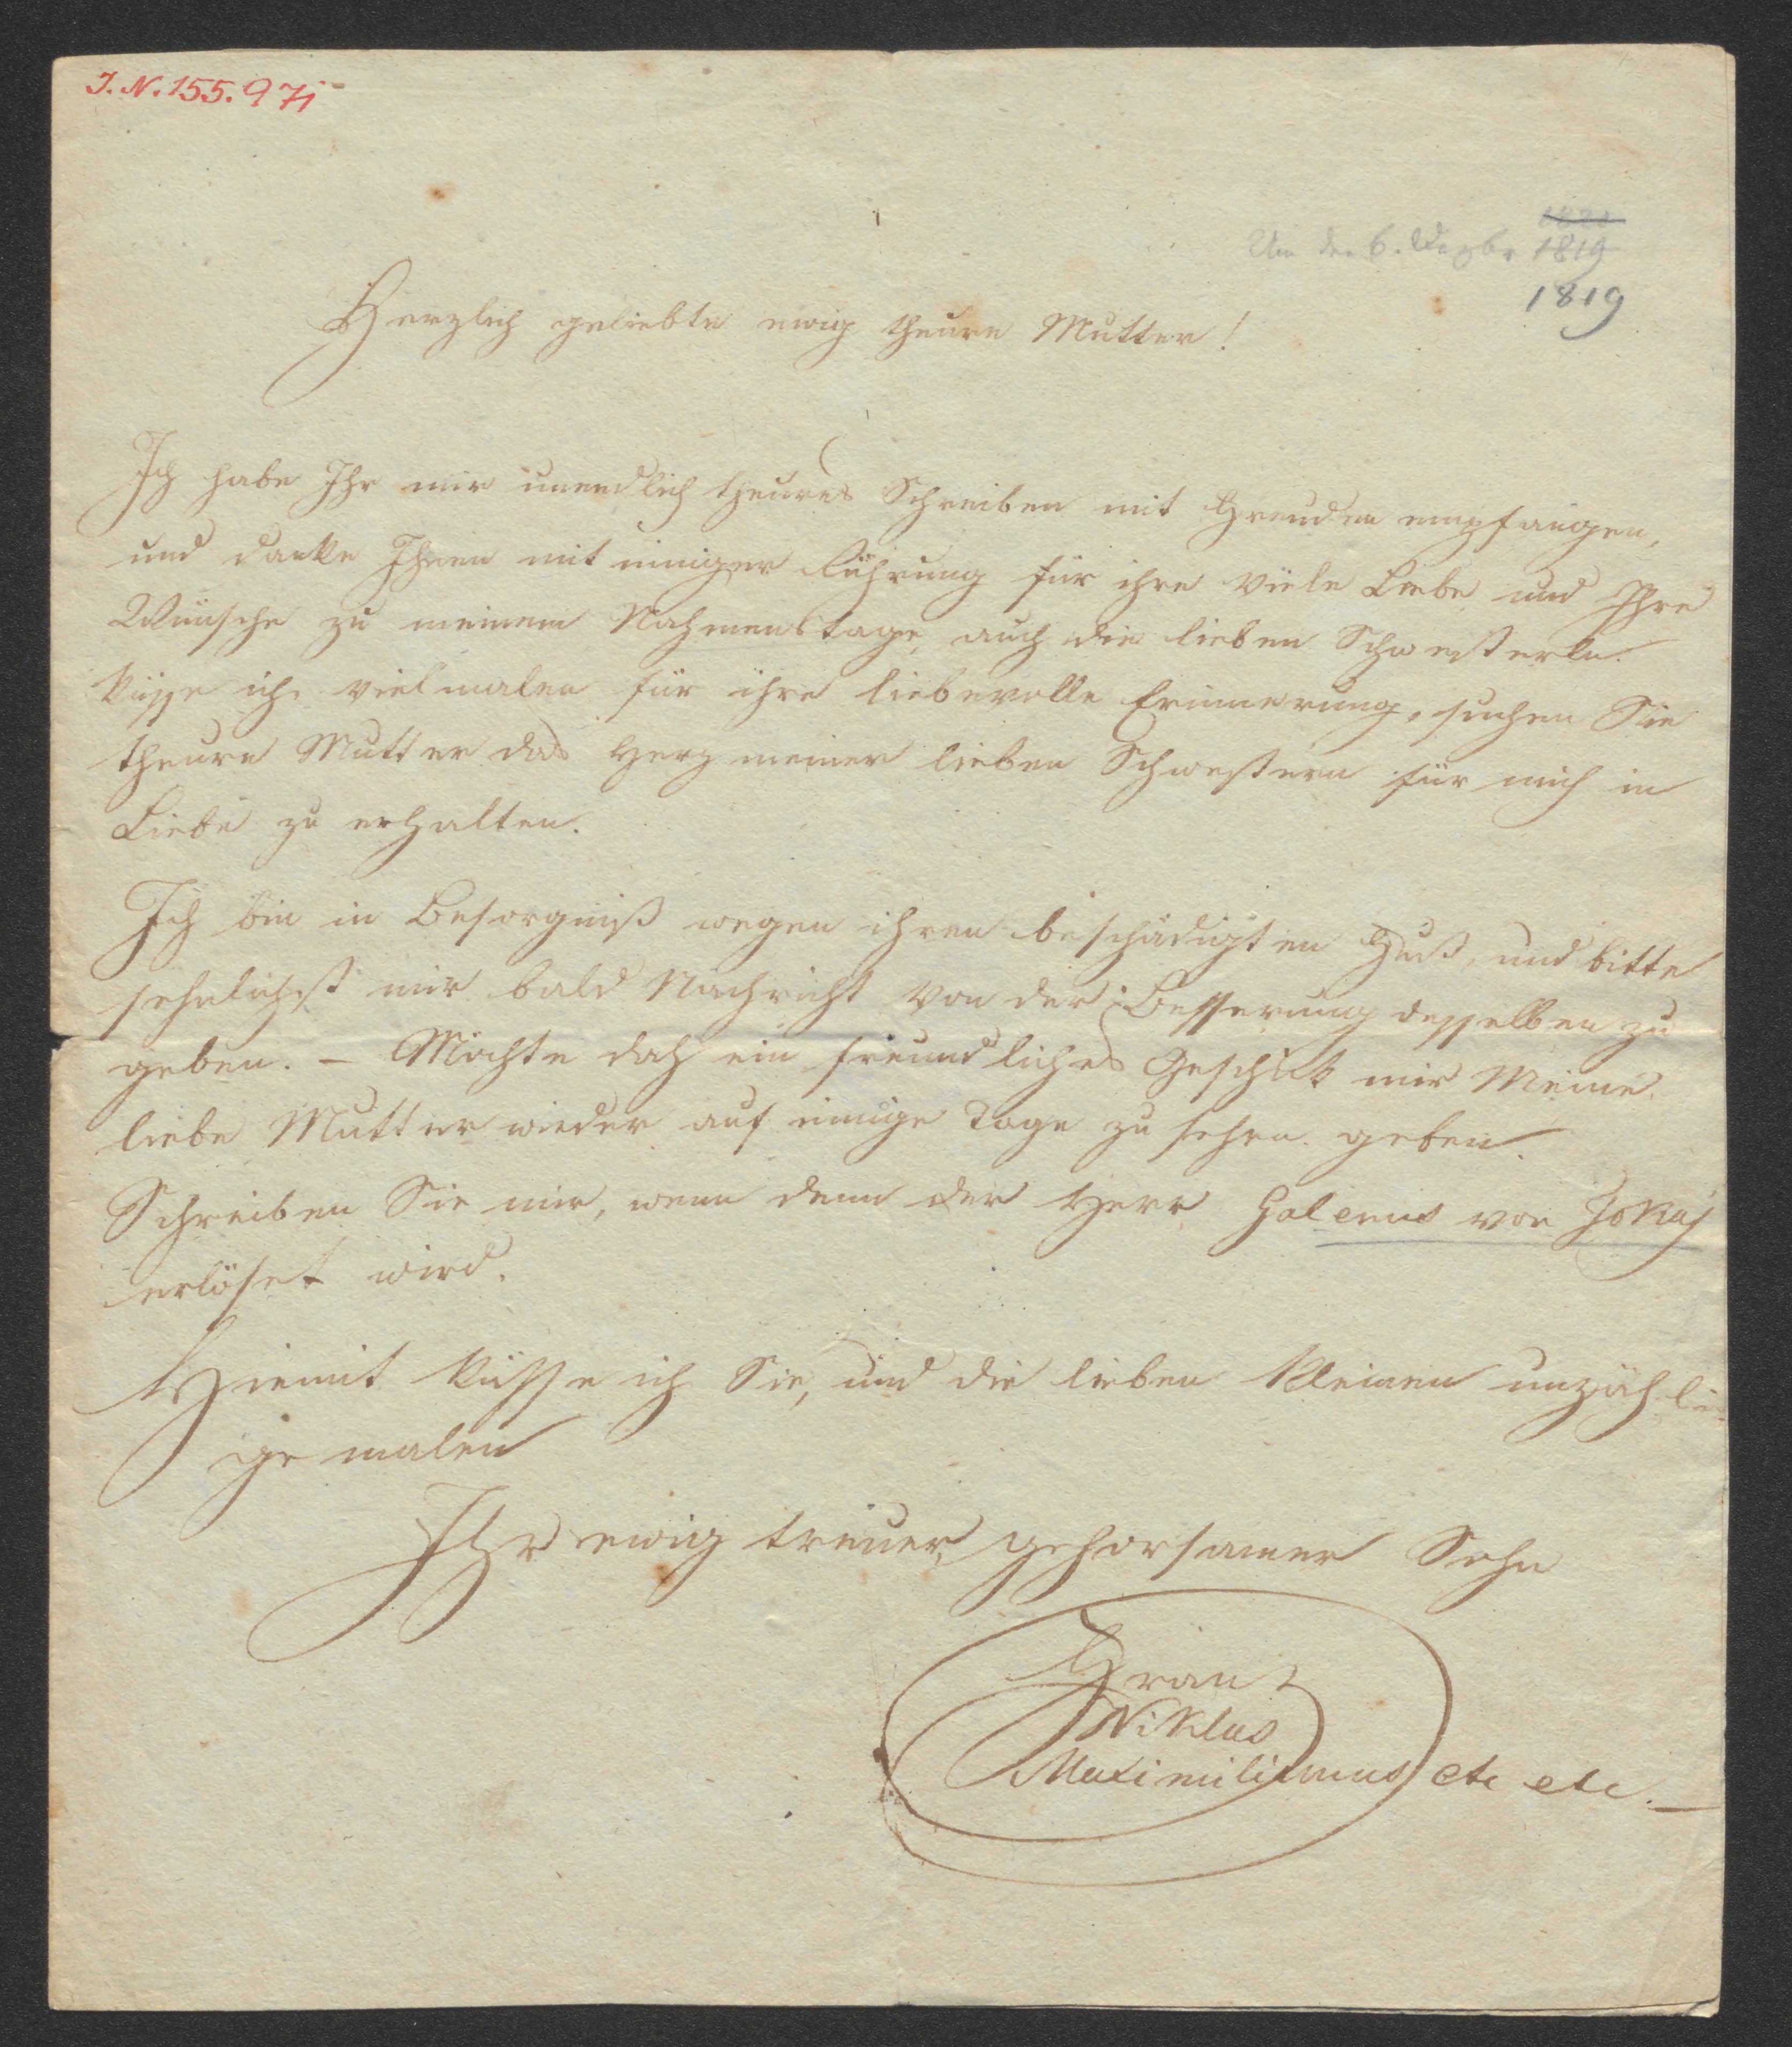 J. N. 155.971
1820
Um den 6. Dezbr 1819
1819
Herzlich geliebte ewig theure Mutter!
Ich habe Ihr mir unendlich theures Schreiben mit Freuden empfangen,
und danke Ihnen mit inniger Rührung für ihre viele Liebe und Ihre
Wünsche zu meinem Nahmenstage, auch die lieben Schwesterln
küsse ich vielmalen für ihre liebevolle Erinnerung, suchen Sie
theure Mutter das Herz meiner lieben Schwestern für mich in
Liebe zu erhalten.
Ich bin in Besorgniß wegen ihren beschädigten Fuß, und bitte
sehnlichst mir bald Nachricht von der Besserung desselben zu
geben. – Möchte doch ein freundliches Geschick mir Meine
liebe Mutter wieder auf einige Tage zu sehen geben.
Schreiben Sie mir, wenn denn der Herr Galenus von Tokaj
erlöset wird.
Hiemit küsse ich Sie, und die lieben Kleinen unzähli-
ge malen
Ihr ewig treuer, gehorsamer Sohn
Franz
Niklas
Maximilianus etc etc. –